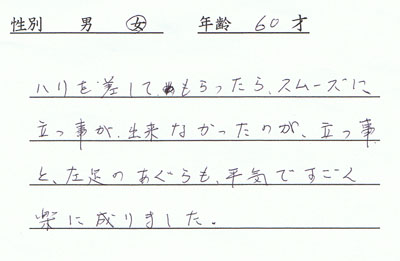 性別 男 女 年齢 60才
ハリを差してもらったら、スムーズに
立つ事が、出来なかったのが、立つ事
と、左足のあぐらも、平気ですごく
楽に成りました。